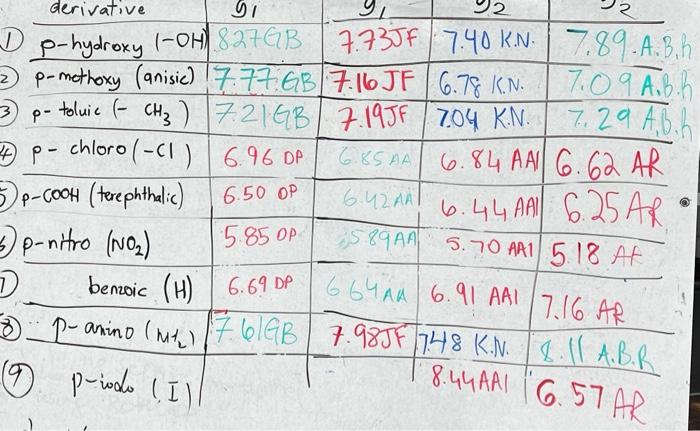 derivative g1 g1 g2 g2
① p-hydroxy (-OH) 8.27 GB 7.73 JF 7.40 K.N. 7.89 A.B.R
② p-methoxy (anisic) 7.77 GB 7.16 JF 6.78 K.N. 7.09 A.B.R
③ p-toluic (-CH3) 7.21 GB 7.19 JF 7.04 K.N. 7.29 A.B.R
④ p-chloro (-Cl) 6.96 DP 6.85 AA 6.84 AA1 6.62 AR
⑤ p-COOH (terephthalic) 6.50 DP 6.42 AA 6.44 AA1 6.25 AR
⑥ p-nitro (NO2) 5.85 DP 5.89 AA 5.70 AA1 5.18 AR
⑦ benzoic (H) 6.69 DP 6.64 AA 6.91 AA1 7.16 AR
⑧ p-amino (NH2) 7.61 GB 7.98 JF 7.48 K.N. 8.11 A.B.R
⑨ p-iodo (I) 8.44 AA1 6.57 AR